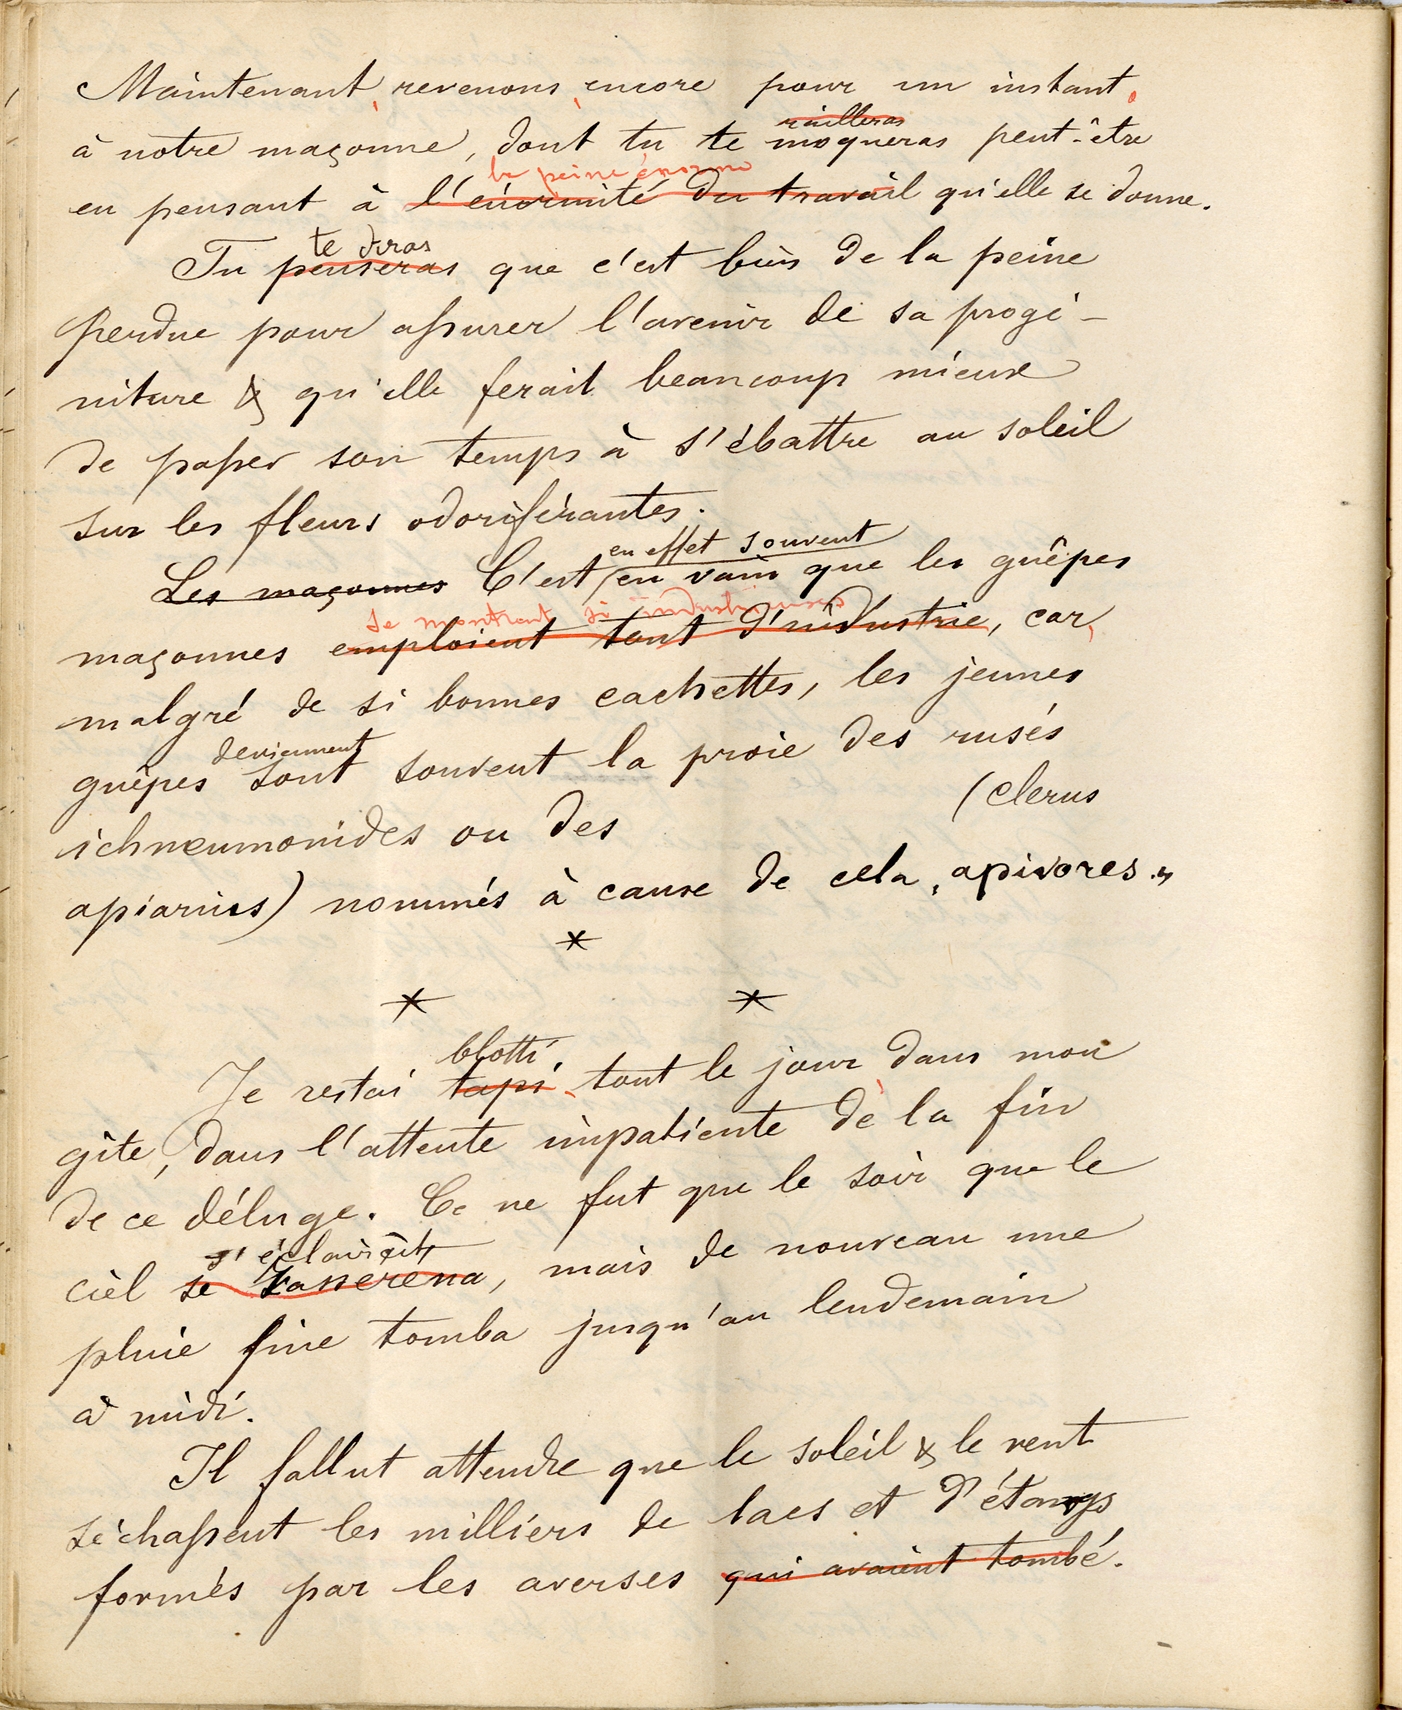 Maintenant revenons encore pour un instant,
railleras
à notre maçonne, dont tu te moqueras peut-être
la peine énorme
en pensant à l'énormité du travail qu'elle se donne.
te diras
Tu penseras que c'est bien de la peine
perdue pour assurer l'avenir de sa progé-
niture & qu'elle ferait beaucoup mieux
de passer son temps à s'ébattre au soleil
sur les fleurs odoriférantes.
en effet souvent
Les maçonnes C'est en vain que les guêpes
se montrent si industrieuses
maçonnes emploient tant d'industrie, car,
malgré de si bonnes cachettes, les jeunes
deviennent
guêpes sont souvent la proie des rusés
ichneumonides ou des (clerus
apiarius) nommés à cause de cela „apivores."
*
* *
blotti
Je restai tapi tout le jour dans mon
gîte, dans l'attente impatiente de la fin
de ce déluge. Ce ne fut que le soir que le
s'éclaircit
ciel se rasséréna, mais de nouveau une
pluie fine tomba jusqu'au lendemain
à midi.
Il fallut attendre que le soleil & le vent
séchassent les milliers de lacs et d'étangs
formés par les averses qui avaient tombé.